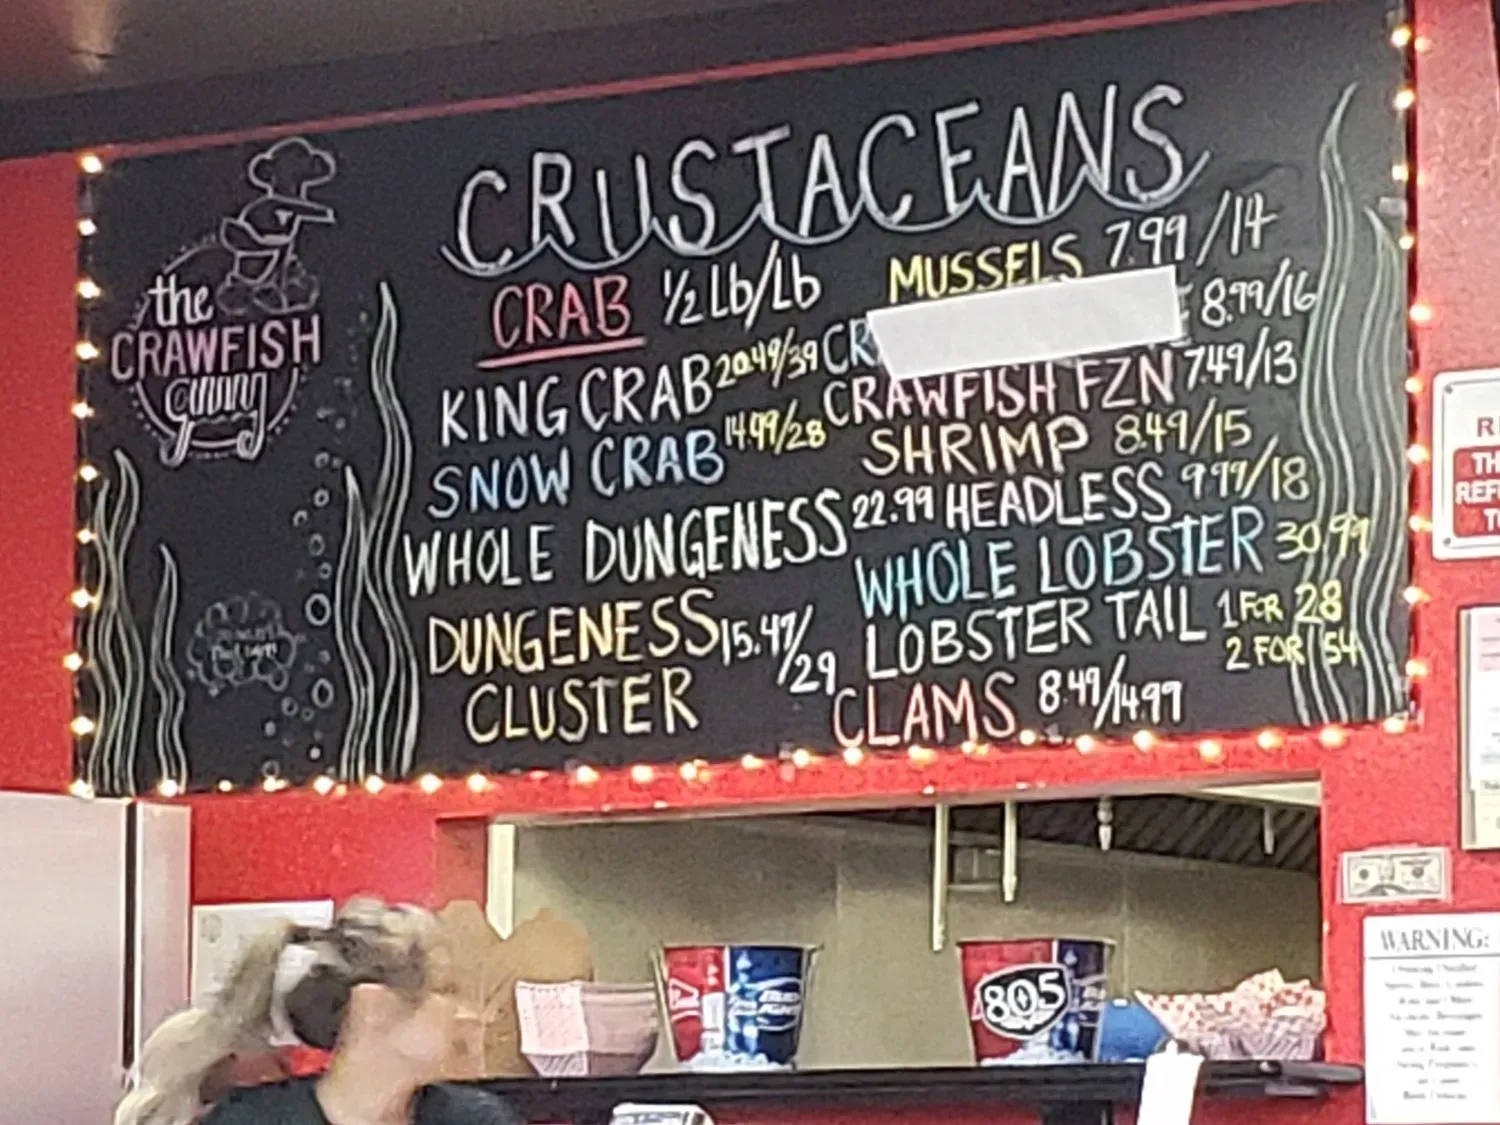 CRUSTACEANS
the
CRAWFISH
CRAB ½ Lb/Lb
KING CRAB 20.49/39
SNOW CRAB 14.99/28
WHOLE DUNGENESS 22.99
DUNGENESS 15.47/29
CLUSTER
MUSSELS 7.99/14
CR 8.99/16
CRAWFISH FZN 7.49/13
SHRIMP 8.49/15
HEADLESS 9.99/18
WHOLE LOBSTER 30.99
LOBSTER TAIL 1 FOR 28
2 FOR 54
CLAMS 8.49/14.99
BUD
LIGHT
805
WARNING: